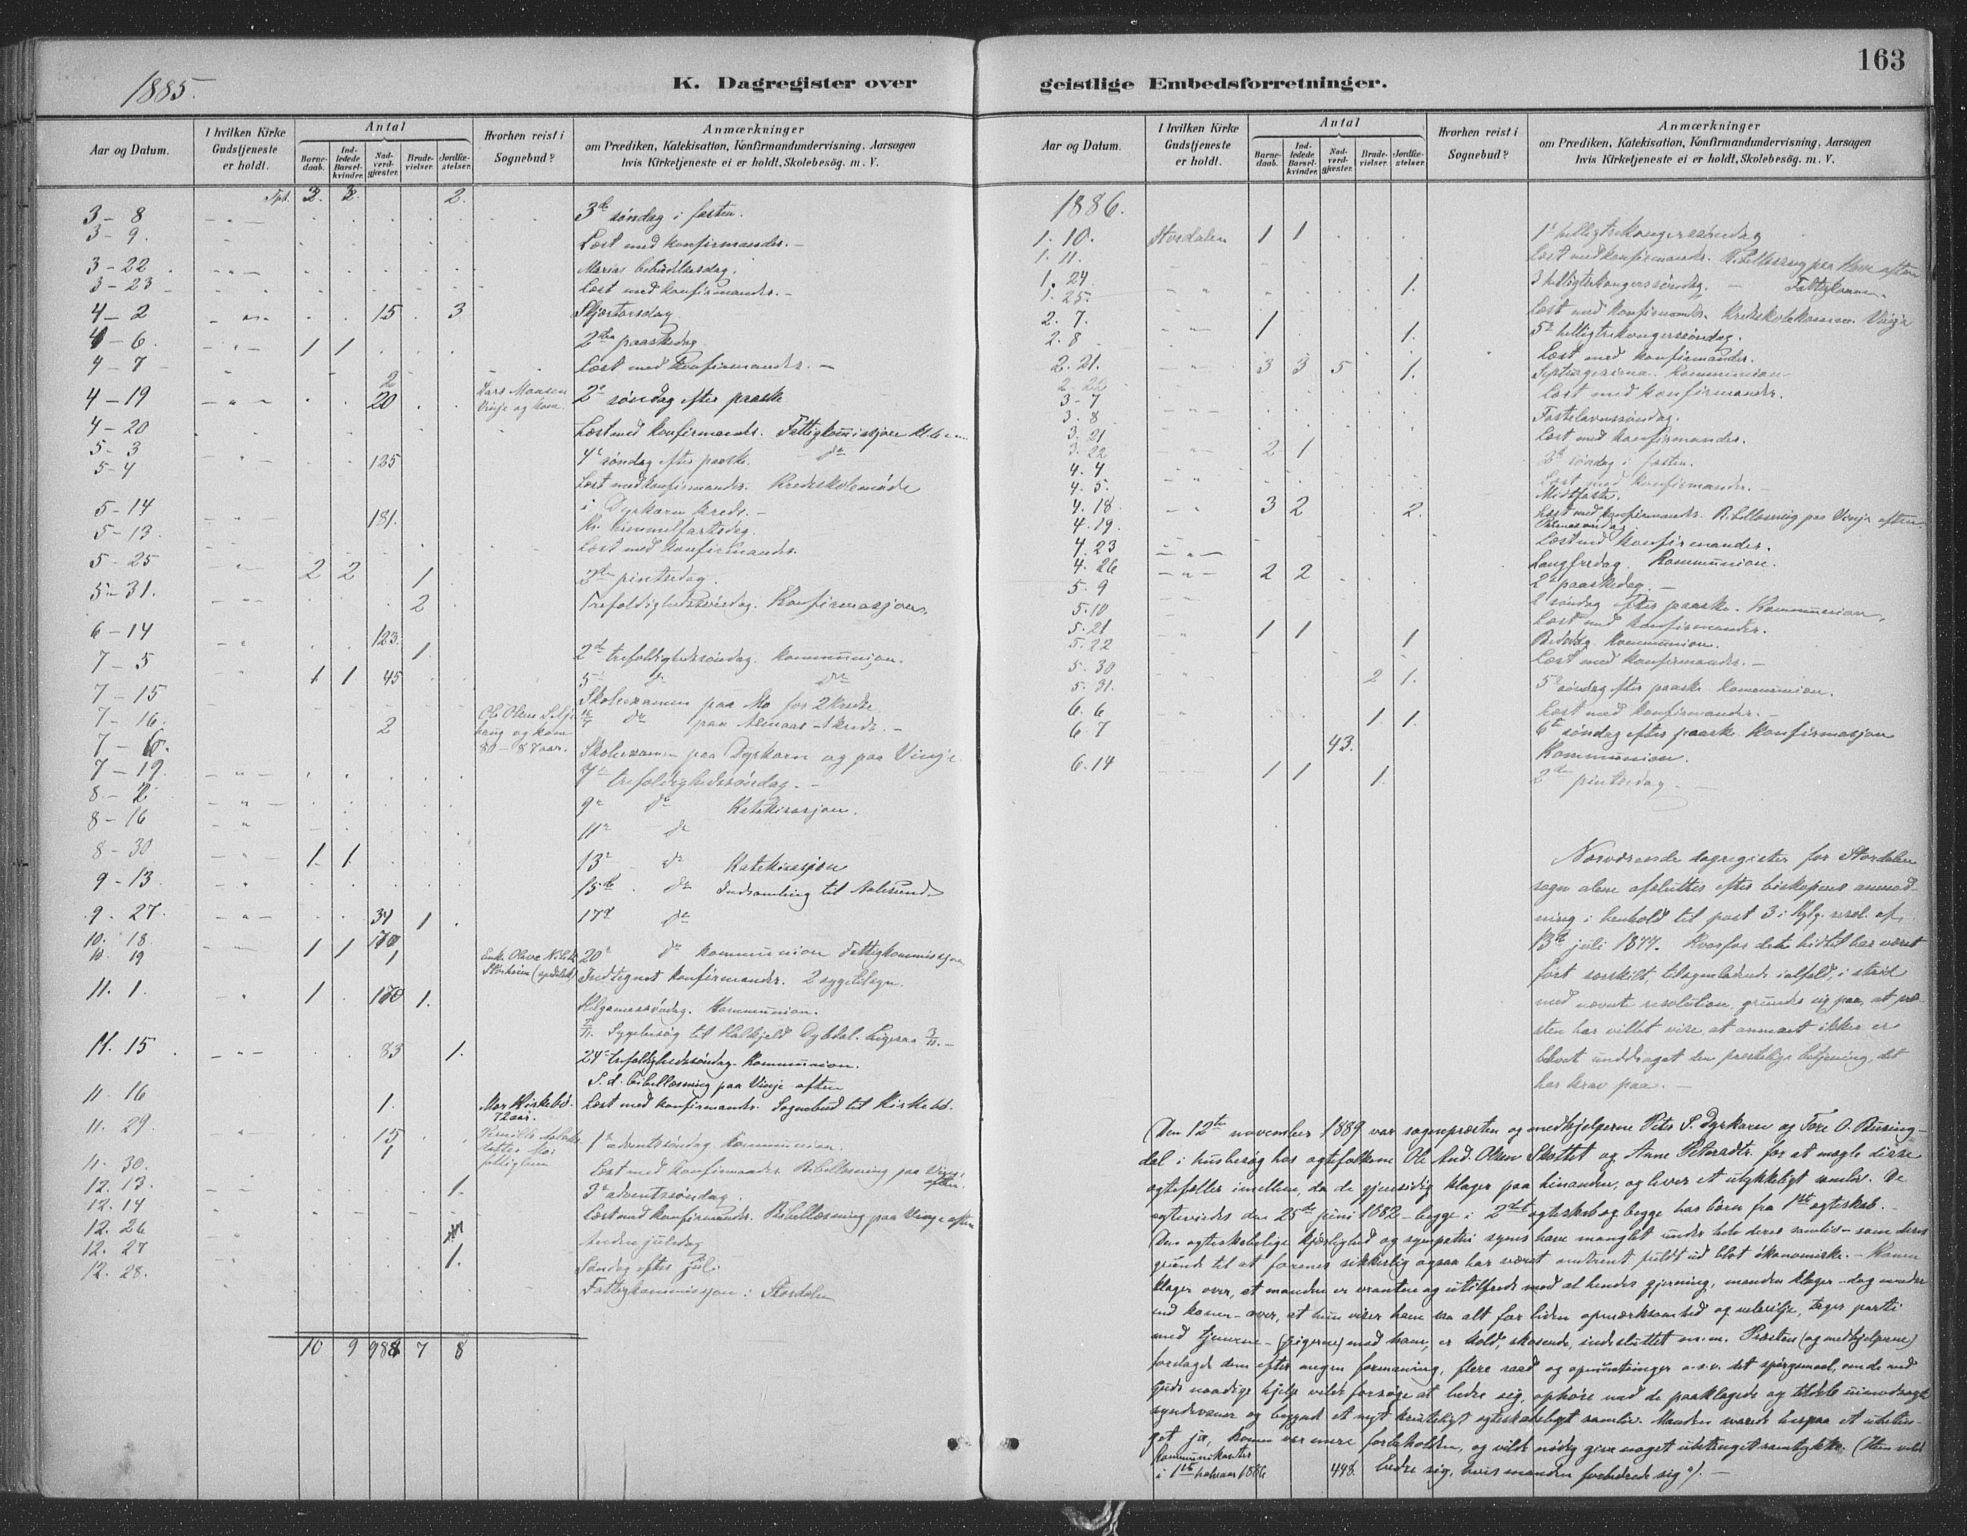 163
K. Dagregister over geistlige Embedsforretninger.
1885.
Aar og Datum.
I hvilken Kirke Gudstjeneste er holdt.
Antal
Barnedaab.
Indledede Barselkvinder.
Nadverdgjæster.
Brudevielser.
Jordfæstelser.
Hvorhen reist i Sognebud?
Anmærkninger
om Prædiken, Katekisation, Konfirmandundervisning, Aarsagen
hvis Kirketjeneste ei er holdt, Skolebesög. m. V.
Tpt. 3. 3. 2.
3 - 8 3de søndag i fasten.
3 - 9. Læst med konfirmander. -
3 - 22 Marias bebudelsesdag.
3 - 23 Læst med konfirmander. -
4 - 2 15 3 Skjærtorsdag
4 - 6. 1 1 2den paaskedag
4 - 7 Læst med Konfirmander. -
4 - 19 2 20 Lars Monsen Vinje og kone. 2e søndag efter paaske
4 - 20 Læst med konfirmander. Fattigkommissjon kl. 6 em.
5 - 3 125 4e søndag efter paaske. do
5 - 4 Læst med konfirmander. Kredsskolemøde
i Dyrkorn kreds. -
5 - 14 181. Kr. himmelfartsdag.
5 - 13. Læst med konfirmander.
5 - 25 2 2 1 2den pintsedag.
5 - 31. 2 Trefoldighedssøndag. Konfirmasjon.
6 - 14 123. 1. 2den trefoldighedssøndag. Kommunion.
7 - 5 1 1 45 5te do do
7 - 15 Skoleexamen paa Mo for 2 kredse
7 - 16. 2 Ole Olsen og kone 80 - 87 aar. do paa Almaas - kreds. -
7 - 6. Skoleexamen paa Dyrkorn og paa Vinje
7 - 19. 7de trefoldighedssøndag. -
8 - 2 9e do Katekisasjon.
8 - 16 11e do
8 - 30 1. 1. 13e do Katekisasjon
9 - 13. 15de do Indsamling til Aalesund
9 - 27. 34 1. 17de do
10. 18. 1 1 20e do Kommunion Fattigkommissjon
10. 19 1 Indtegnet konfirmander. 2 sygebesøgn.
11. 1. 1 170 1. Helgamessøndag. Kommunion.
Sygebesøg til Halkjeld Dybdal. Ligesaa 3/11. -
11. 15. 83 1. 24e trefoldighedssøndag. Kommunion.
S. d. bibellæsning paa Vinje aften
11. 16 1. Mor Kirkebø. 72 aar. Læst med konfirmander. Sognebud til Kirkebø.
11. 29. 15 1 1e adventssøndag Kommunion.
11. 30. Læst med konfirmander. Bibellæsning paa Vinje aften.
12. 13. 1. 3e adventssøndag.
12. 14 Læst med konfirmander. Bibellæsning paa Vinje aften
12. 26 Anden juledag
12. 27 1. Søndag efter jul.
12. 28. Fattigkommissjon i Stordalen
10 9 988 7 8
Aar og Datum.
I hvilken Kirke Gudstjeneste er holdt.
Antal
Barnedaab.
Indledede Barselkvinder.
Nadverdgjæster.
Brudevielser.
Jordfæstelser.
Hvorhen reist i Sognebud?
Anmærkninger
om Prædiken, Katekisation, Konfirmandundervisning, Aarsagen
hvis Kirketjeneste ei er holdt, Skolebesög. m. V.
1886.
1. 10. Stordalen 1 1 1e helligtrekongerssøndag
1. 11. Læst med konfirmander. Bibellæsning paa Hove aften
1. 24 1. 3 helligtrekongerssøndag. - Fattigkomm.
1. 25. Læst med konfirmander. Kredsskolekomm. Vinje
2. 7. 1 1. 5e helligtrekongerssøndag.
2. 8 Læst med konfirmander.
2. 21. 3 3 5 1. Septuagesima. Kommunion
2 - 22 Læst med konfirmander.
3 - 7 Fastelavnssøndag.
3. 8 Læst med konfirmander.
3. 21 2 1 2den søndag i fasten.
3. 22 Læst med konfirmander. -
4. 4 Midtfaste.
4. 5. Læst med konfirmander. Bibellæsning paa Vinje aften.
4. 18. 3 2 2. Palmesøndag
4. 19. Læst med konfirmander.
4. 23 Langfredag. Kommunion.
4. 26 2 2 2e paaskedag. -
5. 9 2 søndag efter paaske. Kommunion.
5. 10 Læst med konfirmander.
5. 21 1 1 1 Bededag. Kommunion.
5. 22 Læst med konfirmander. -
5. 30 2 1. 5e søndag efter paaske Kommunion.
5. 31. Læst med konfirmander.
6. 6 1 1. 6te søndag efter paaske. Konfirmasjon
6 7 43. Kommunion.
6. 14 1 1 1. 2den pintsedag. -
Nærværende dagregister for Stordalen
sogn alene afsluttes efter biskopens anmod-
ning i henhold til post 3 i Kglg. resol. af
13de juli 1877. Hvorfor dette hidtil har været
ført særskilt, tilsyneladende ialfald, i strid
med nævnte resolution, grundes sig paa, at præ-
sten har villet vise, at annexet ikke er
blevet unddraget den præstelige betjening, det
har krav paa. -
(Den 12te november 1889 var sognepræsten og medhjelperne Peter S. Dyrkorn og Tore O. Busing-
dal i husbesøg hos ægtefolkene Ole And. Olsen Skottet og Anne Petersdtr. for at megle disse
ægtefæller imellem, da de gjensidig klager paa hinanden, og lever et ulykkeligt samliv. De
ægteviedes den 25de juni 1882 - begge i 2det ægteskab og begge har børn fra 1ste ægteskab. -
Den ægteskabelige kjærlighed og sympathi synes have manglet under hele deres samliv - som deres
grunde til at forenes sikkerlig ogsaa har været omtrent fuldt ud blot økonomiske. - Konen
klager over, at manden er vranten og utilfreds med al hendes gjerning, manden klager - dog mindre
end konen - over, at hun viser ham saa alt for liden opmærksomhed og velvilje, tager parti
med tjenerne - (pigerne) mod ham, er kold, skosende, indesluttet m.m. Præsten (og medhjelperne)
forelagde dem efter megen formaning, flere raad og opmuntringer o.s.v. det spørgsmaal, om de med
Guds naadige hjelp vilde forsøge at bedre sig, ophøre med de paaklagede og tildels uimodsagte
syndevaner og begynde et nyt kristeligt ægteskabeligt samliv. Manden svarede herpaa et ubetin-
get ja, konen var mere forbeholden, og vilde nødig give noget ubetinget samtykke. (Hun vilde
bedre sig, hvis manden forbedrede sig"). -
Kommunikanter
i 1ste halvaar 1886 448.